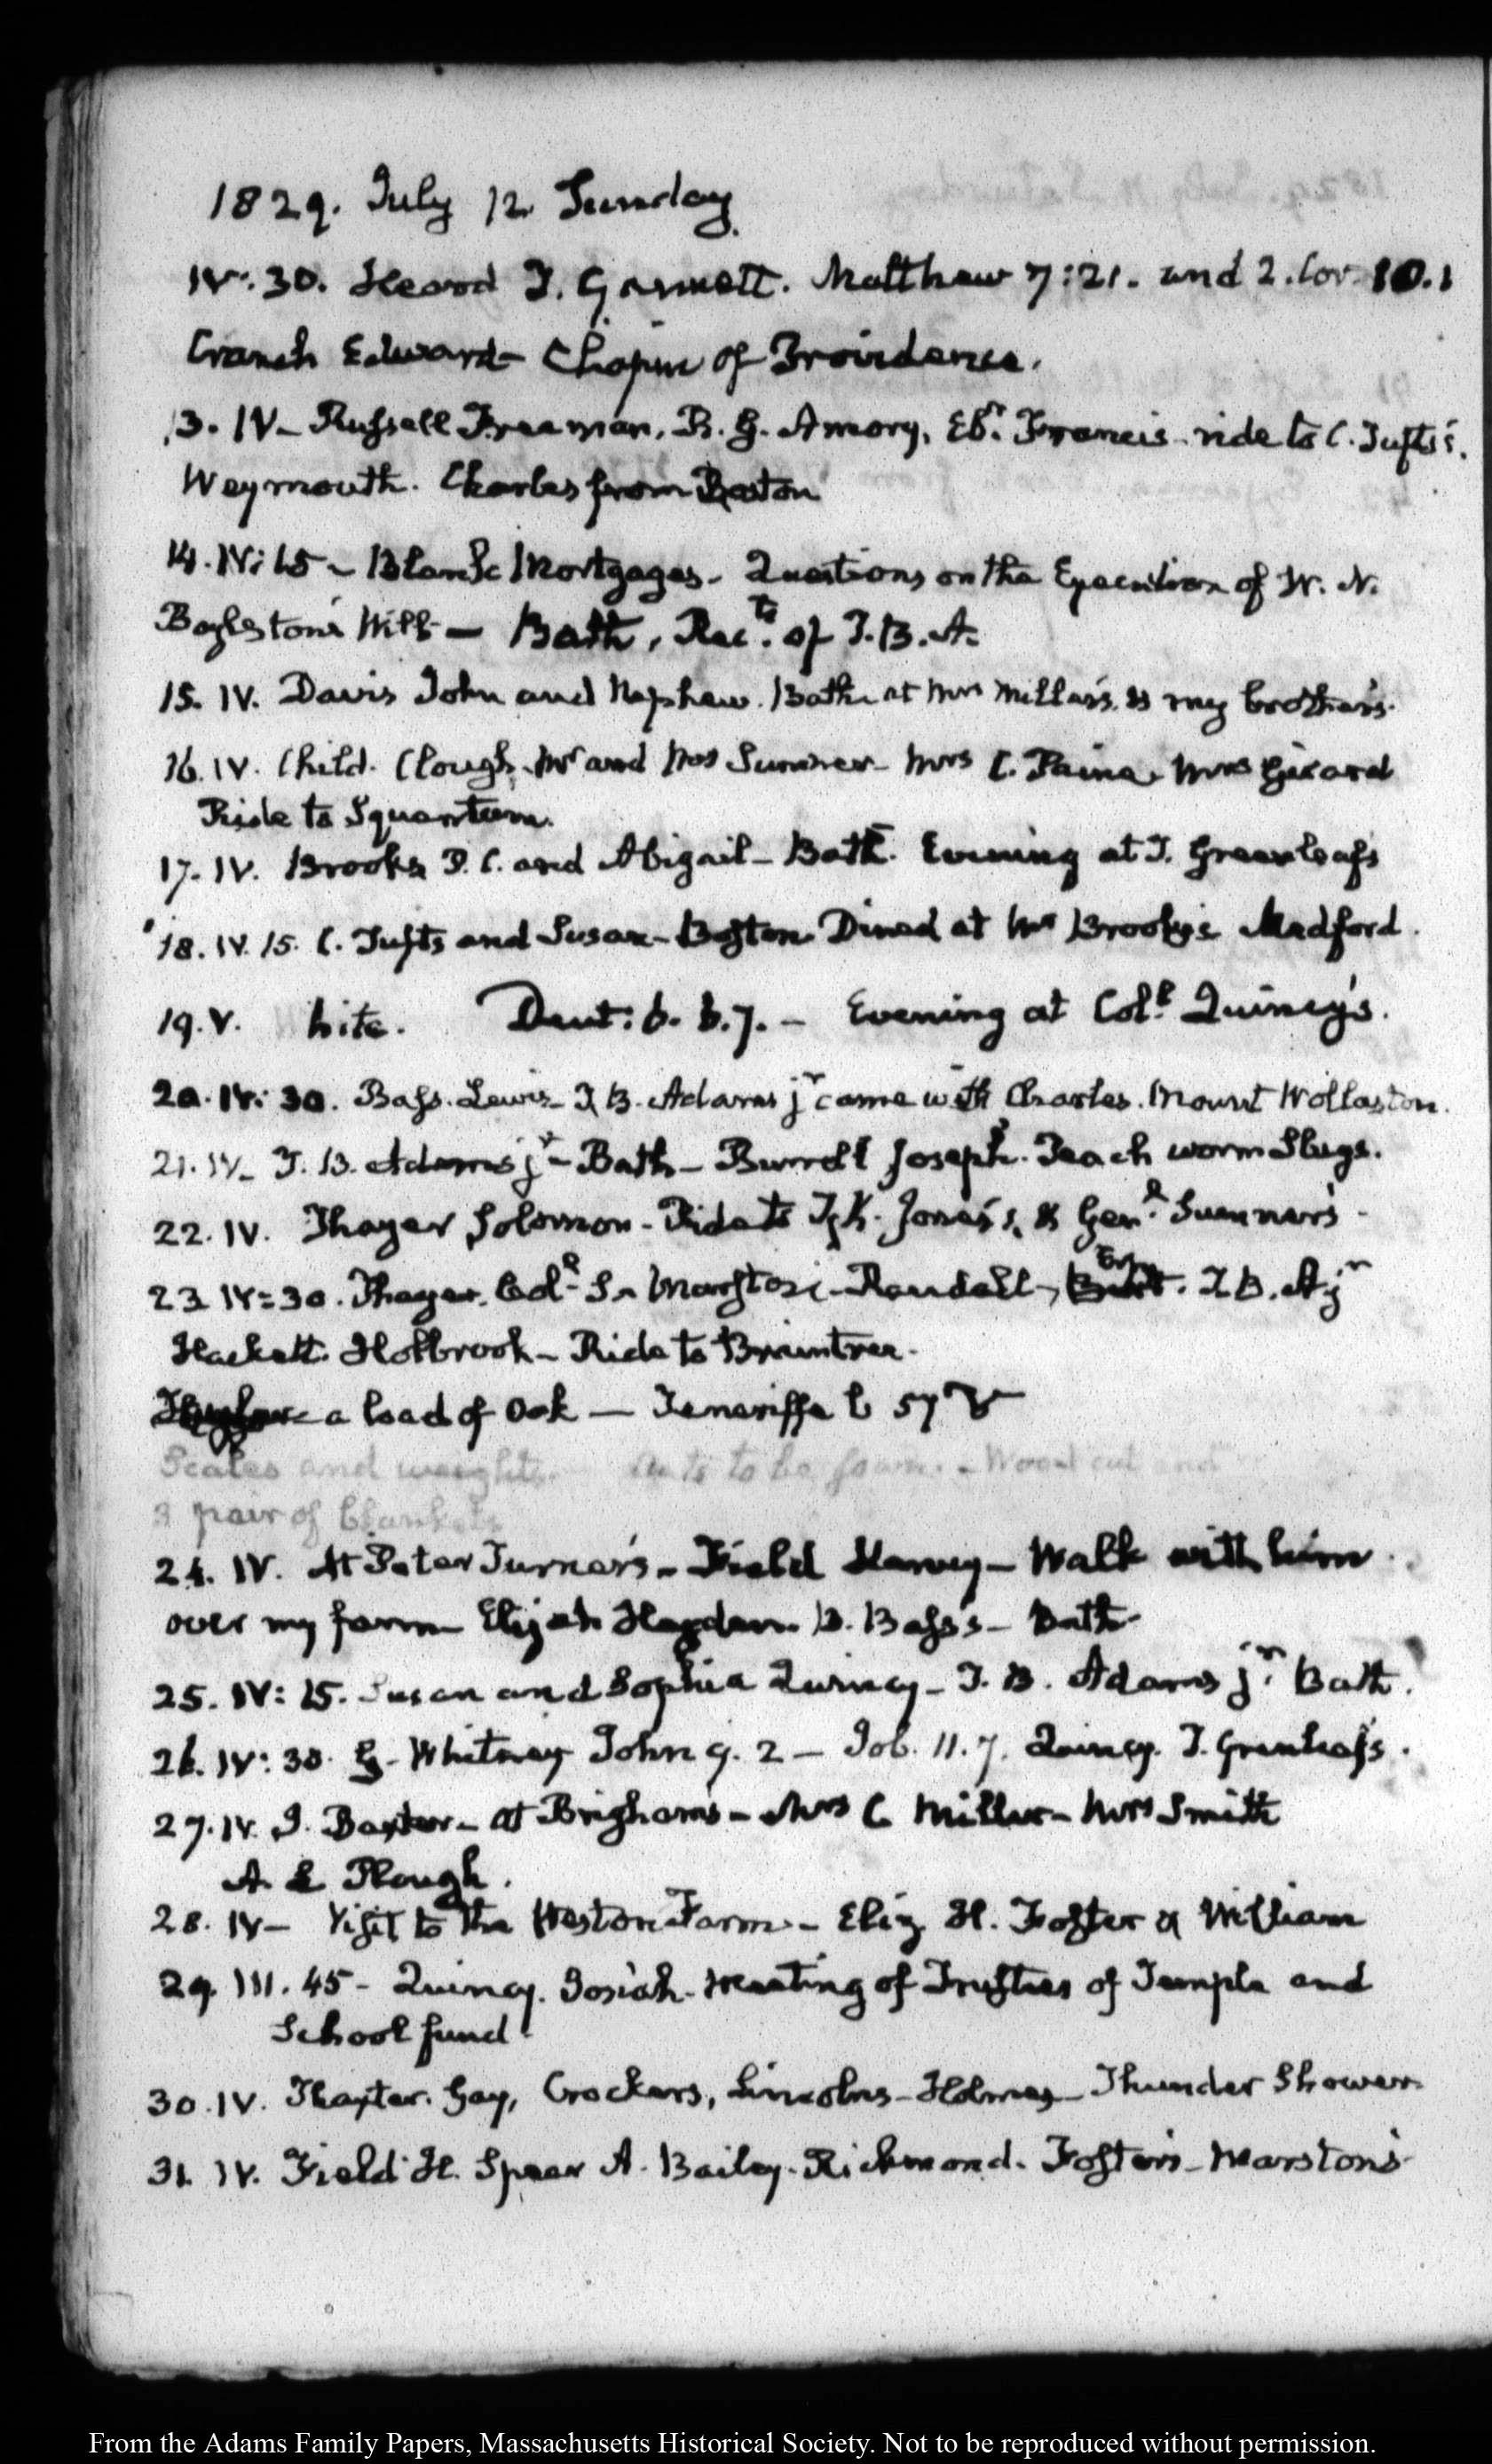 1829. July 12. Sunday.
IV:30. Heard T. Gannett. Matthew 7:21. and 2. Cor. 10.1
Cranch Edward - Chapin of Providence.
13. IV - Russell Freeman, R. G. Amory, Ebr. Francis - ride to C. Tufts's.
Weymouth. Charles from Boston
14. IV:15 - Blank Mortgages - Questions on the Execution of W. N.
Boylston's Will - Bath, Rects. of T.B.A.
15. IV. Davis John and Nephew. Bath at Mrs Millar's. & my brother's.
16. IV. Child. Clough. Mr and Mrs Sumner - Mrs C. Paine. Mrs Girard
Ride to Squantum.
17. IV. Brooks P. C. and Abigail - Bath. Evening at T. Greenleafs
18. IV. 15. C. Tufts and Susan - Boston Dined at Mr Brooks's Medford.
19. V. Deut: 6. 6.7. - Evening at Coll. Quincy's.
20. IV: 30. Bass. Lewis - T. B. Adams jr came with Charles. Mount Wollaston.
21. IV - T. B. Adams jr - Bath - Burrell Joseph. Peach worm Slugs.
22. IV. Thayer Solomon - Ride to T. K. Jones's, & Genl. Sumner's -
23 IV=30. Thayer. Coll. S. Marston - Randall - T. B. A jr
Hackett. Holbrook - Ride to Braintree -
a load of Oak - Teneriffe 57
Scales and weights. to be - Wood cut and
3 pair of blankets
24. IV. At Peter Turner's - Field Harvey - Walk with him
over my farm - Elijah Hayden. B. Bass's - Bath -
25. IV: 15. Susan and Sophia Quincy - T. B. Adams jr. Bath.
26. IV: 30. G. Whitney John 9. 2 - Job. 11. 7. Quincy. T. Greenleafs.
27. IV. J. Baxter - at Brigham's - Mrs C Miller - Mrs Smith
A. & Plough.
28. IV - Visit to the Weston Farm. - Eliz H. Foster & William
29. III. 45 - Quincy. Josiah - Meeting of Trustees of Temple and
School fund.
30. IV. Thaxter. Gay, Crockers, Lincolns - Holmes - Thunder Shower.
31. IV. Field H. Spear A. Bailey. Richmond. Foster's - Marston's
From the Adams Family Papers, Massachusetts Historical Society. Not to be reproduced without permission.